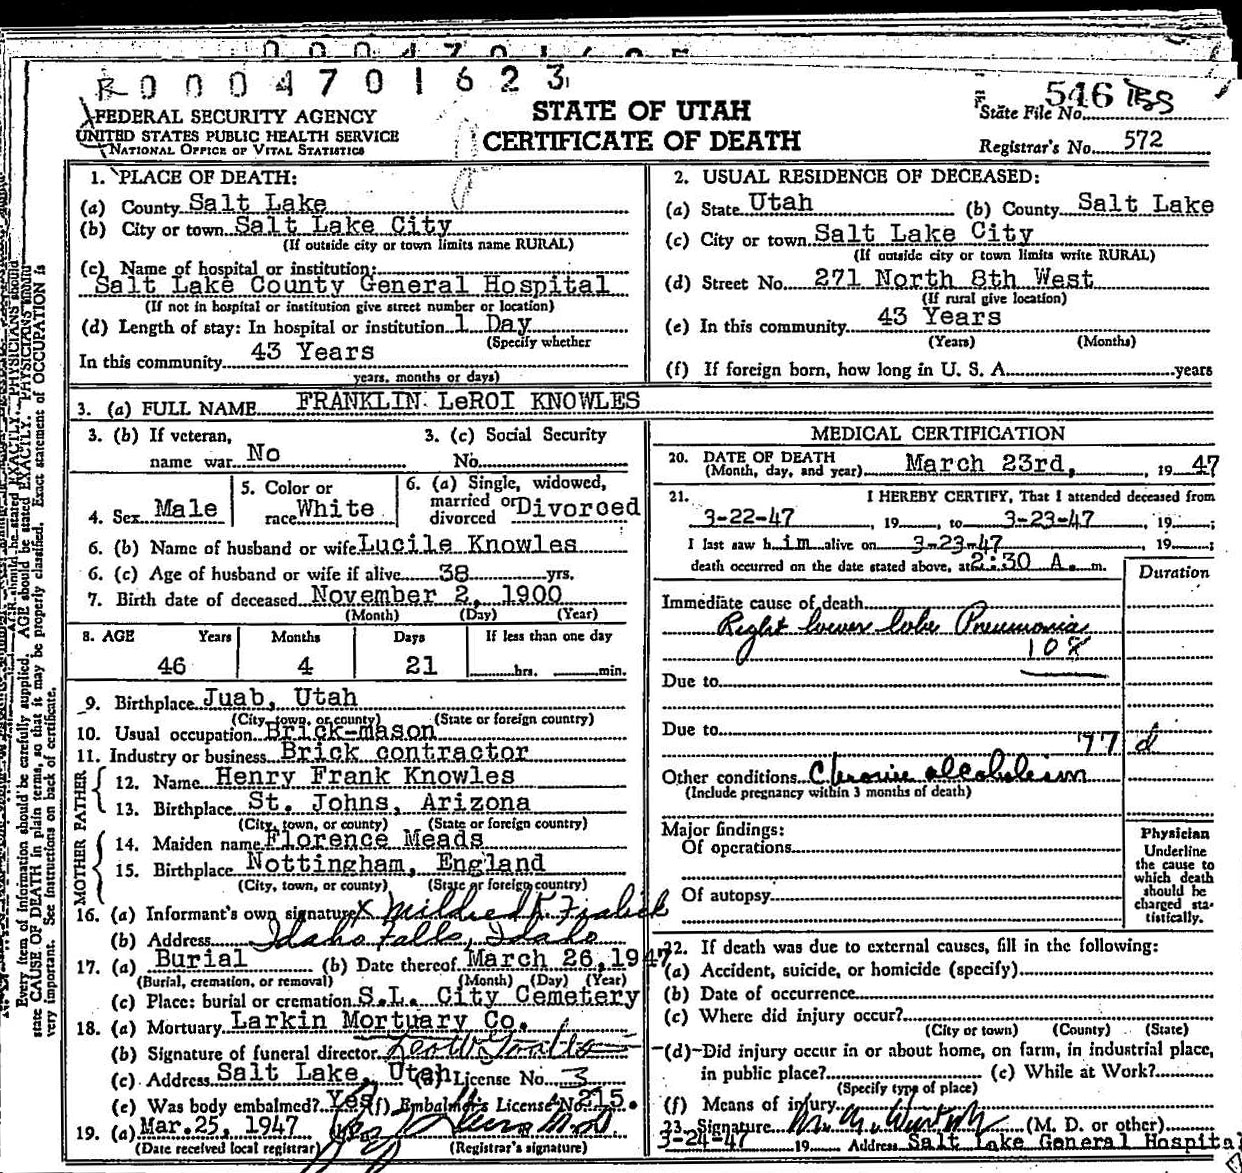 R 0 0 0 4 7 0 1 6 2 3
FEDERAL SECURITY AGENCY
UNITED STATES PUBLIC HEALTH SERVICE
NATIONAL OFFICE OF VITAL STATISTICS
STATE OF UTAH
CERTIFICATE OF DEATH
State File No. 546
Registrar's No. 572
1. PLACE OF DEATH:
(a) County Salt Lake
(b) City or town Salt Lake City
(If outside city or town limits name RURAL)
(c) Name of hospital or institution:
Salt Lake County General Hospital
(If not in hospital or institution give street number or location)
(d) Length of stay: In hospital or institution 1 Day
(Specify whether
In this community 43 Years
years, months or days)
2. USUAL RESIDENCE OF DECEASED:
(a) State Utah (b) County Salt Lake
(c) City or town Salt Lake City
(If outside city or town limits write RURAL)
(d) Street No. 271 North 8th West
(If rural give location)
(e) In this community 43 Years
(Years) (Months)
(f) If foreign born, how long in U. S. A. years
3. (a) FULL NAME FRANKLIN LeROI KNOWLES
3. (b) If veteran,
name war No
3. (c) Social Security
No.
4. Sex Male
5. Color or
race White
6. (a) Single, widowed,
married or
divorced Divorced
6. (b) Name of husband or wife Lucile Knowles
6. (c) Age of husband or wife if alive 38 yrs.
7. Birth date of deceased November 2, 1900
(Month) (Day) (Year)
8. AGE Years Months Days If less than one day
46 4 21 hrs. min.
9. Birthplace Juab, Utah
(City, town, or county) (State or foreign country)
10. Usual occupation Brick-mason
11. Industry or business Brick contractor
FATHER
12. Name Henry Frank Knowles
13. Birthplace St. Johns, Arizona
(City, town, or county) (State or foreign country)
MOTHER
14. Maiden name Florence Meads
15. Birthplace Nottingham, England
(City, town, or county) (State or foreign country)
16. (a) Informant's own signature X Mildred K.
(b) Address Idaho Falls, Idaho
17. (a) Burial (b) Date thereof March 26, 1947
(Burial, cremation, or removal) (Month) (Day) (Year)
(c) Place: burial or cremation S.L. City Cemetery
18. (a) Mortuary Larkin Mortuary Co.
(b) Signature of funeral director
(c) Address Salt Lake, Utah (d) License No. 3
(e) Was body embalmed? Yes (f) Embalmer's License No. 215.
19. (a) Mar. 25, 1947
(Date received local registrar) (Registrar's signature)
MEDICAL CERTIFICATION
20. DATE OF DEATH
(Month, day, and year) March 23rd, , 19 47
21. I HEREBY CERTIFY, That I attended deceased from
3-22-47 , 19 , to 3-23-47 , 19 ;
I last saw h im alive on 3-23-47 , 19 ;
death occurred on the date stated above, at 2:30 A. m.
Duration
Immediate cause of death
Right lower lobe Pneumonia
108
Due to
Due to
77 d
Other conditions Chronic alcoholism
(Include pregnancy within 3 months of death)
Major findings:
Of operations
Of autopsy
Physician
Underline
the cause to
which death
should be
charged sta-
tistically.
22. If death was due to external causes, fill in the following:
(a) Accident, suicide, or homicide (specify)
(b) Date of occurrence
(c) Where did injury occur?
(City or town) (County) (State)
(d) Did injury occur in or about home, on farm, in industrial place,
in public place? (c) While at Work?
(Specify type of place)
(f) Means of injury
23. Signature (M. D. or other)
3-24-47 19 Address Salt Lake General Hospital
Every item of information should be carefully supplied. AGE should be stated EXACTLY. PHYSICIANS should
state CAUSE OF DEATH in plain terms, so that it may be properly classified. Exact statement of OCCUPATION is
very important. See instructions on back of certificate.